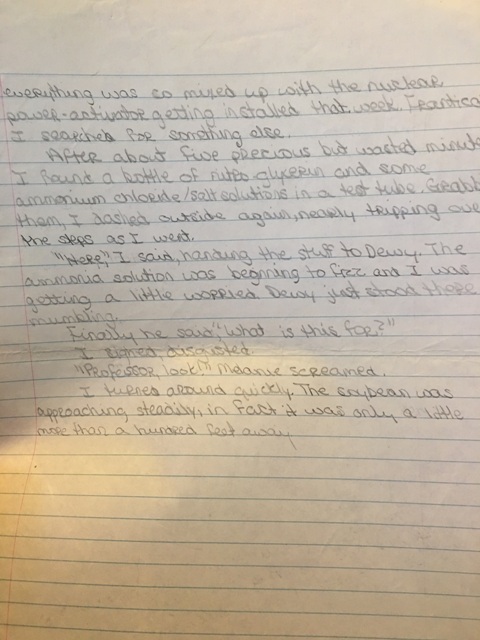 everything was so mixed up with the nuclear
power-activator getting installed that week. Frantica
I searched for something else.
After about five precious but wasted minute
I found a bottle of nitro-glycerin and some
ammonium chloride/salt solutions in a test tube. Grabb
them, I dashed outside again, nearly tripping ove
the steps as I went.
"Here," I said, handing the stuff to Dewy. The
ammonia solution was beginning to and I was
getting a little worried. Dewy just stood there
mumbling.
Finally he said "What is this for?"
I sighed, disgusted.
"Professor, look!" Melanie screamed.
I turned around quickly. The soybean was
approaching, steadily, in fact it was only a little
more than a hundred feet away